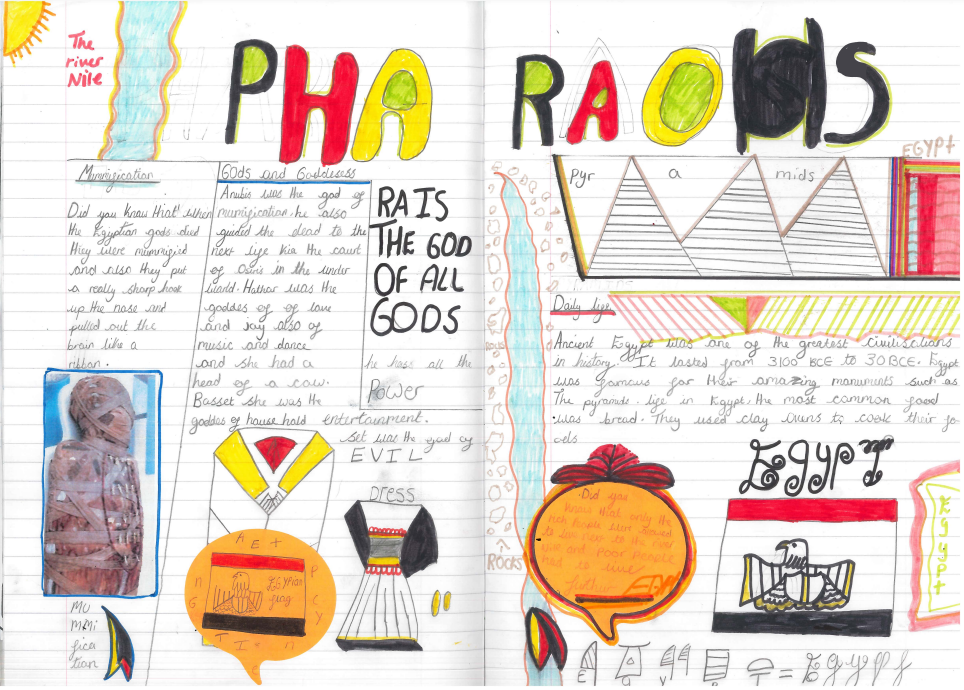 The
river
Nile
PHA
Mummification
Did you know that when
the Egyptian gods died
they were mummified
and also they put
a really sharp hook
up the nose and
pulled out the
brain like a
ribbon.
Gods and Goddesess
Anubis was the god of
mumification. he also
guided the dead to the
next life kia the court
of Osiris in the under
world. Hathor was the
goddes of of love
and joy also of
music and dance
and she had a
head of a cow.
Basset she was the
goddes of house hold entertainment.
Set was the god of
EVIL
RA IS
THE GOD
OF ALL
GODS
he hass all the
Power
DRESS
EGYPtian
flag
MU
MMi
fica
tian
RAOHS
Pyr a mids
EGYPt
Daily life
Ancient Egypt was one of the greatest civiliscations
in history. It lasted from 3100 BCE to 30 BCE. Egypt
was famous for their amazing monuments such as
The pyramids. life in Egypt, the most common food
was bread. They used clay ovens to cook their fo
ods
ROCKS
Did you
know that only the
rich people were allowed
to live next to the river
nile and Poor people
had to live
further
EGYPT
Egypt
= Egypt